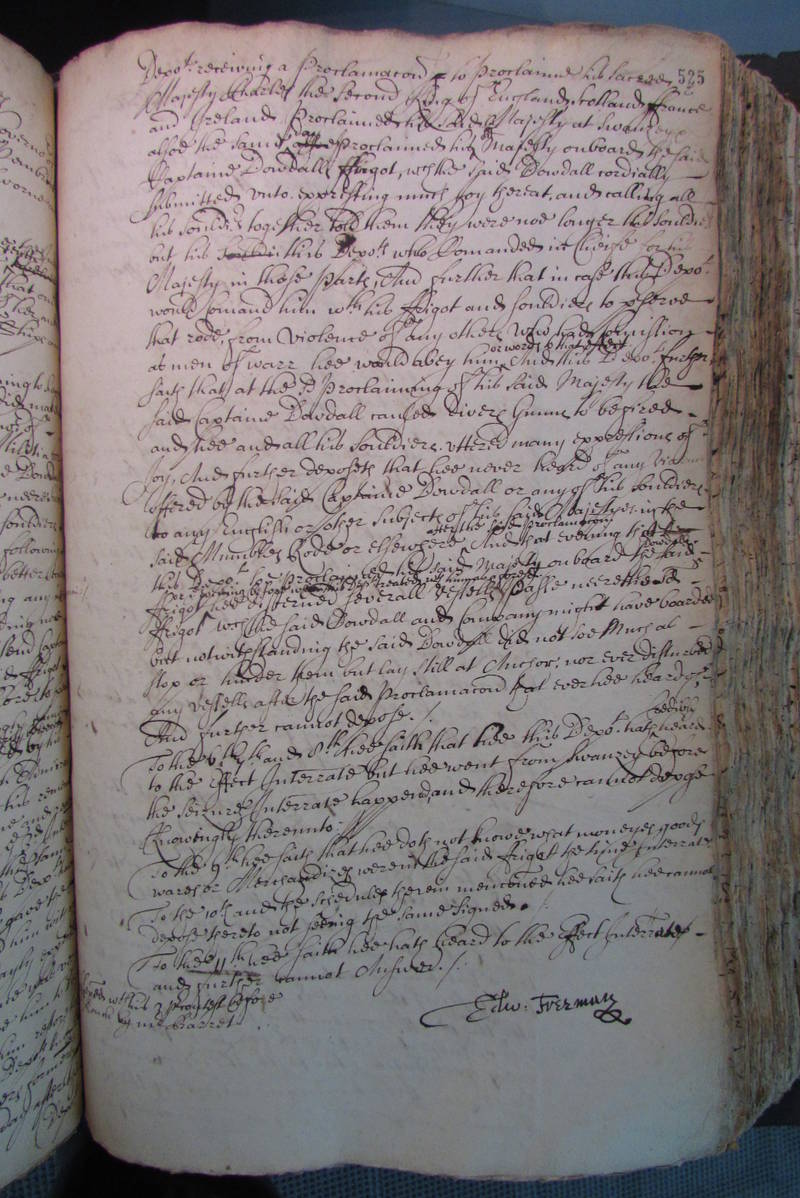 525
Depo.t receiving a Proclamacon to Proclaime his Sacred
Majesty Charles the Second King of England Scotland ffrance
and Ireland Proclaimed his said Majesty at Swanzey
alsoe the same day Proclaimed his Majesty onboard the said
Captaine Dowdalls ffrigot, wch the said Dowdall cordially
submitted unto expressing much joy thereat, and calling all
his souldiers together told them they were noe longer his souldiers
but his this Depo.ts who Comanded in Cheife for his
Majesty in those parts, And further that in case this Depo.t
would comand him wth his ffrigot and souldiers to pserve
that rode, from violence of any others who had Comission
as men of warr hee would obey him or words to that effect And this Depo.t further
saith that at the sd Proclaiming of his said Majesty the
said Captaine Dowdall caused divers Gunns to be fired
and hee and all his souldiers uttered many expressions of
Joy, And further deposeth that hee never heard of any violence
offered by the said Captaine Dowdall or any of his souldiers
to any English or other subjects of his said Majestyes in the
said Mumbles Rode or elsewhere after the said Proclamation And that evening that
this Depo.t Proclaimed his said Majesty onboard the said Dowdalls
ffrigot hee discerned severall vessells passe neere the sd
ffrigot wch the said Dowdall and Company might have boarded
but notwithstanding the said Dowdall did not soe much as
stop or hinder them but lay still at Anchor, nor ever disturbed
any vessells after the said Proclamacon that ever hee heard of
And further cannot depose ./
To the 6th 7th and 8th hee saith that hee this Depo.t hath heard
to the effect Interrate but hee went from Swanzey before
the seizure Interrate happend, and therefore cannot depose
knowingly thereunto.
To the 9th hee saith that hee doth not knowe what moneyes goods
wares or Merchandizes were in the said ffrigot the tyme Interrate
To the 10th and the schedule therein mencioned hee saith hee cannot
depose thereto not seeing the same signed ./
To the 11th hee saith hee hath heard to the effect Interrate
and further cannot Answer ./
before
Edw: Freeman